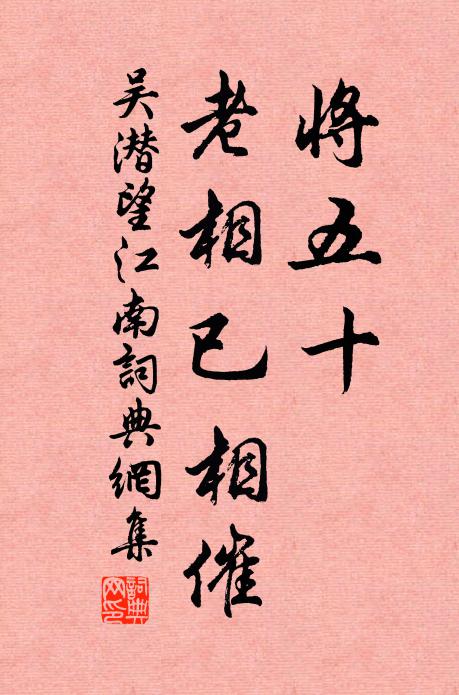 将五十
老相已相催
吴潜望江南詞典網集
詞典网印